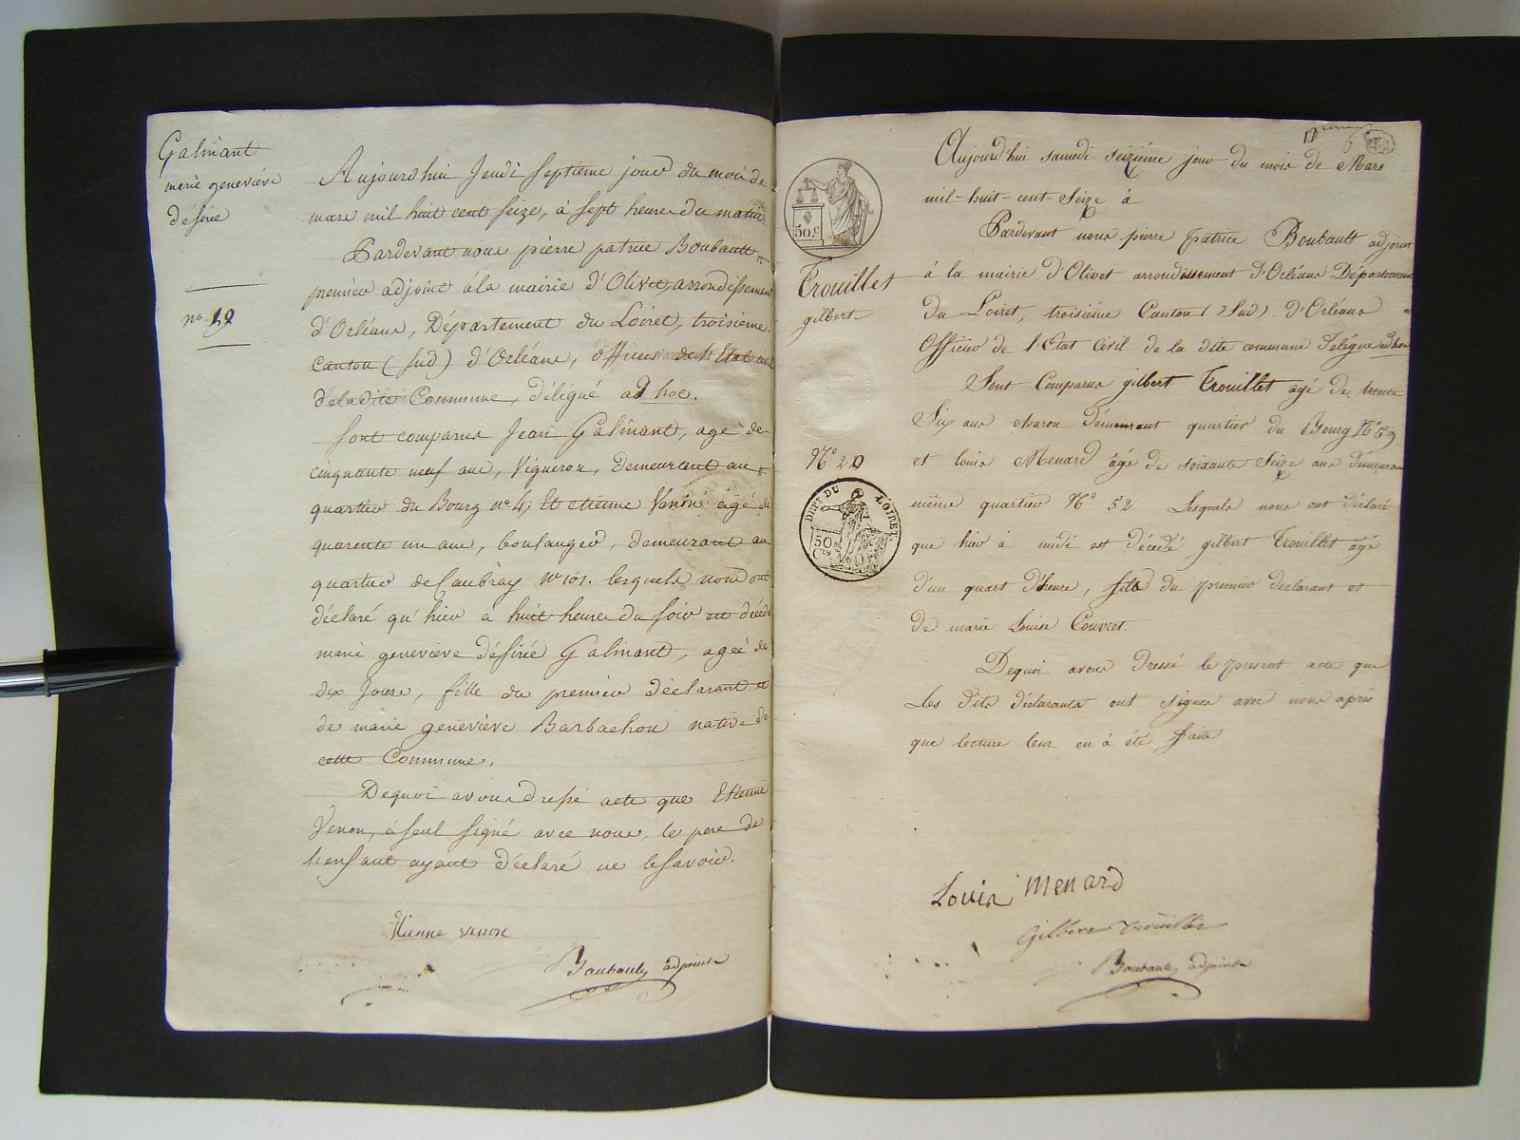 Galinant
marie geneviève
désirée
no. 19
Aujourdhui Jeudi septieme jour du mois de
mars mil huit cent seize, à sept heures du matin
Pardevant nous pierre patrice Boubault
premier adjoint à la mairie d'Olivet, arrondissement
d'Orléans, Département du Loiret, troisieme
Canton (sud) d'Orléans, officier de l'Etat civil
de la dite Commune, délégué ad hoc.
sont comparus Jean Galinant, agé de
cinquante neuf ans, Vigneron, demeurant au
quartier du Bourg no 4, Et etienne Venon agé de
quarente un ans, boulanger, demeurant au
quartier de Caubray no 101. lesquels nous ont
déclaré qu'hier à huit heures du soir est décédé
marie geneviève désirée Galinant, agée de
dix jours, fille du premier déclarant et
de marie geneviève Barbachou native de
cette Commune.
Dequoi avons dressé acte que Etienne
Venon, à seul signé avec nous, le pere de
l'enfant ayant déclaré ne le savoir.
Etienne venon
Boubault adjoint
6
50 c
Trouillet
gilbert
No 20
DEPT DU LOIRET
50
Cs
Aujourd'hui samedi seizième jour du mois de Mars
mil-huit-cent Seize à
Pardevant nous pierre patrice Boubault adjoint
à la mairie d'Olivet arrondissement d'Orléans Département
du Loiret, troisième Canton (Sud) d'Orléans
Officier de l'Etat Civil de la dite commune Délégué ad hoc
Sont Comparus gilbert Trouillet agé de trente
Six ans charon demeurant quartier du Bourg No 59
et louis Menard âgé de soixante Seize ans demeurant
même quartier No 52 Lesquels nous ont déclaré
que hier à midi est décédé gilbert Trouillet âgé
d'un quart d'heure, fils du premier declarant et
de marie Louise Couvret.
Dequoi avons dressé le present acte que
Les dits déclarants ont signés avec nous après
que lecture leur en à été faite
Louis Menard
Gilbere Trouillet
Boubault adjoint